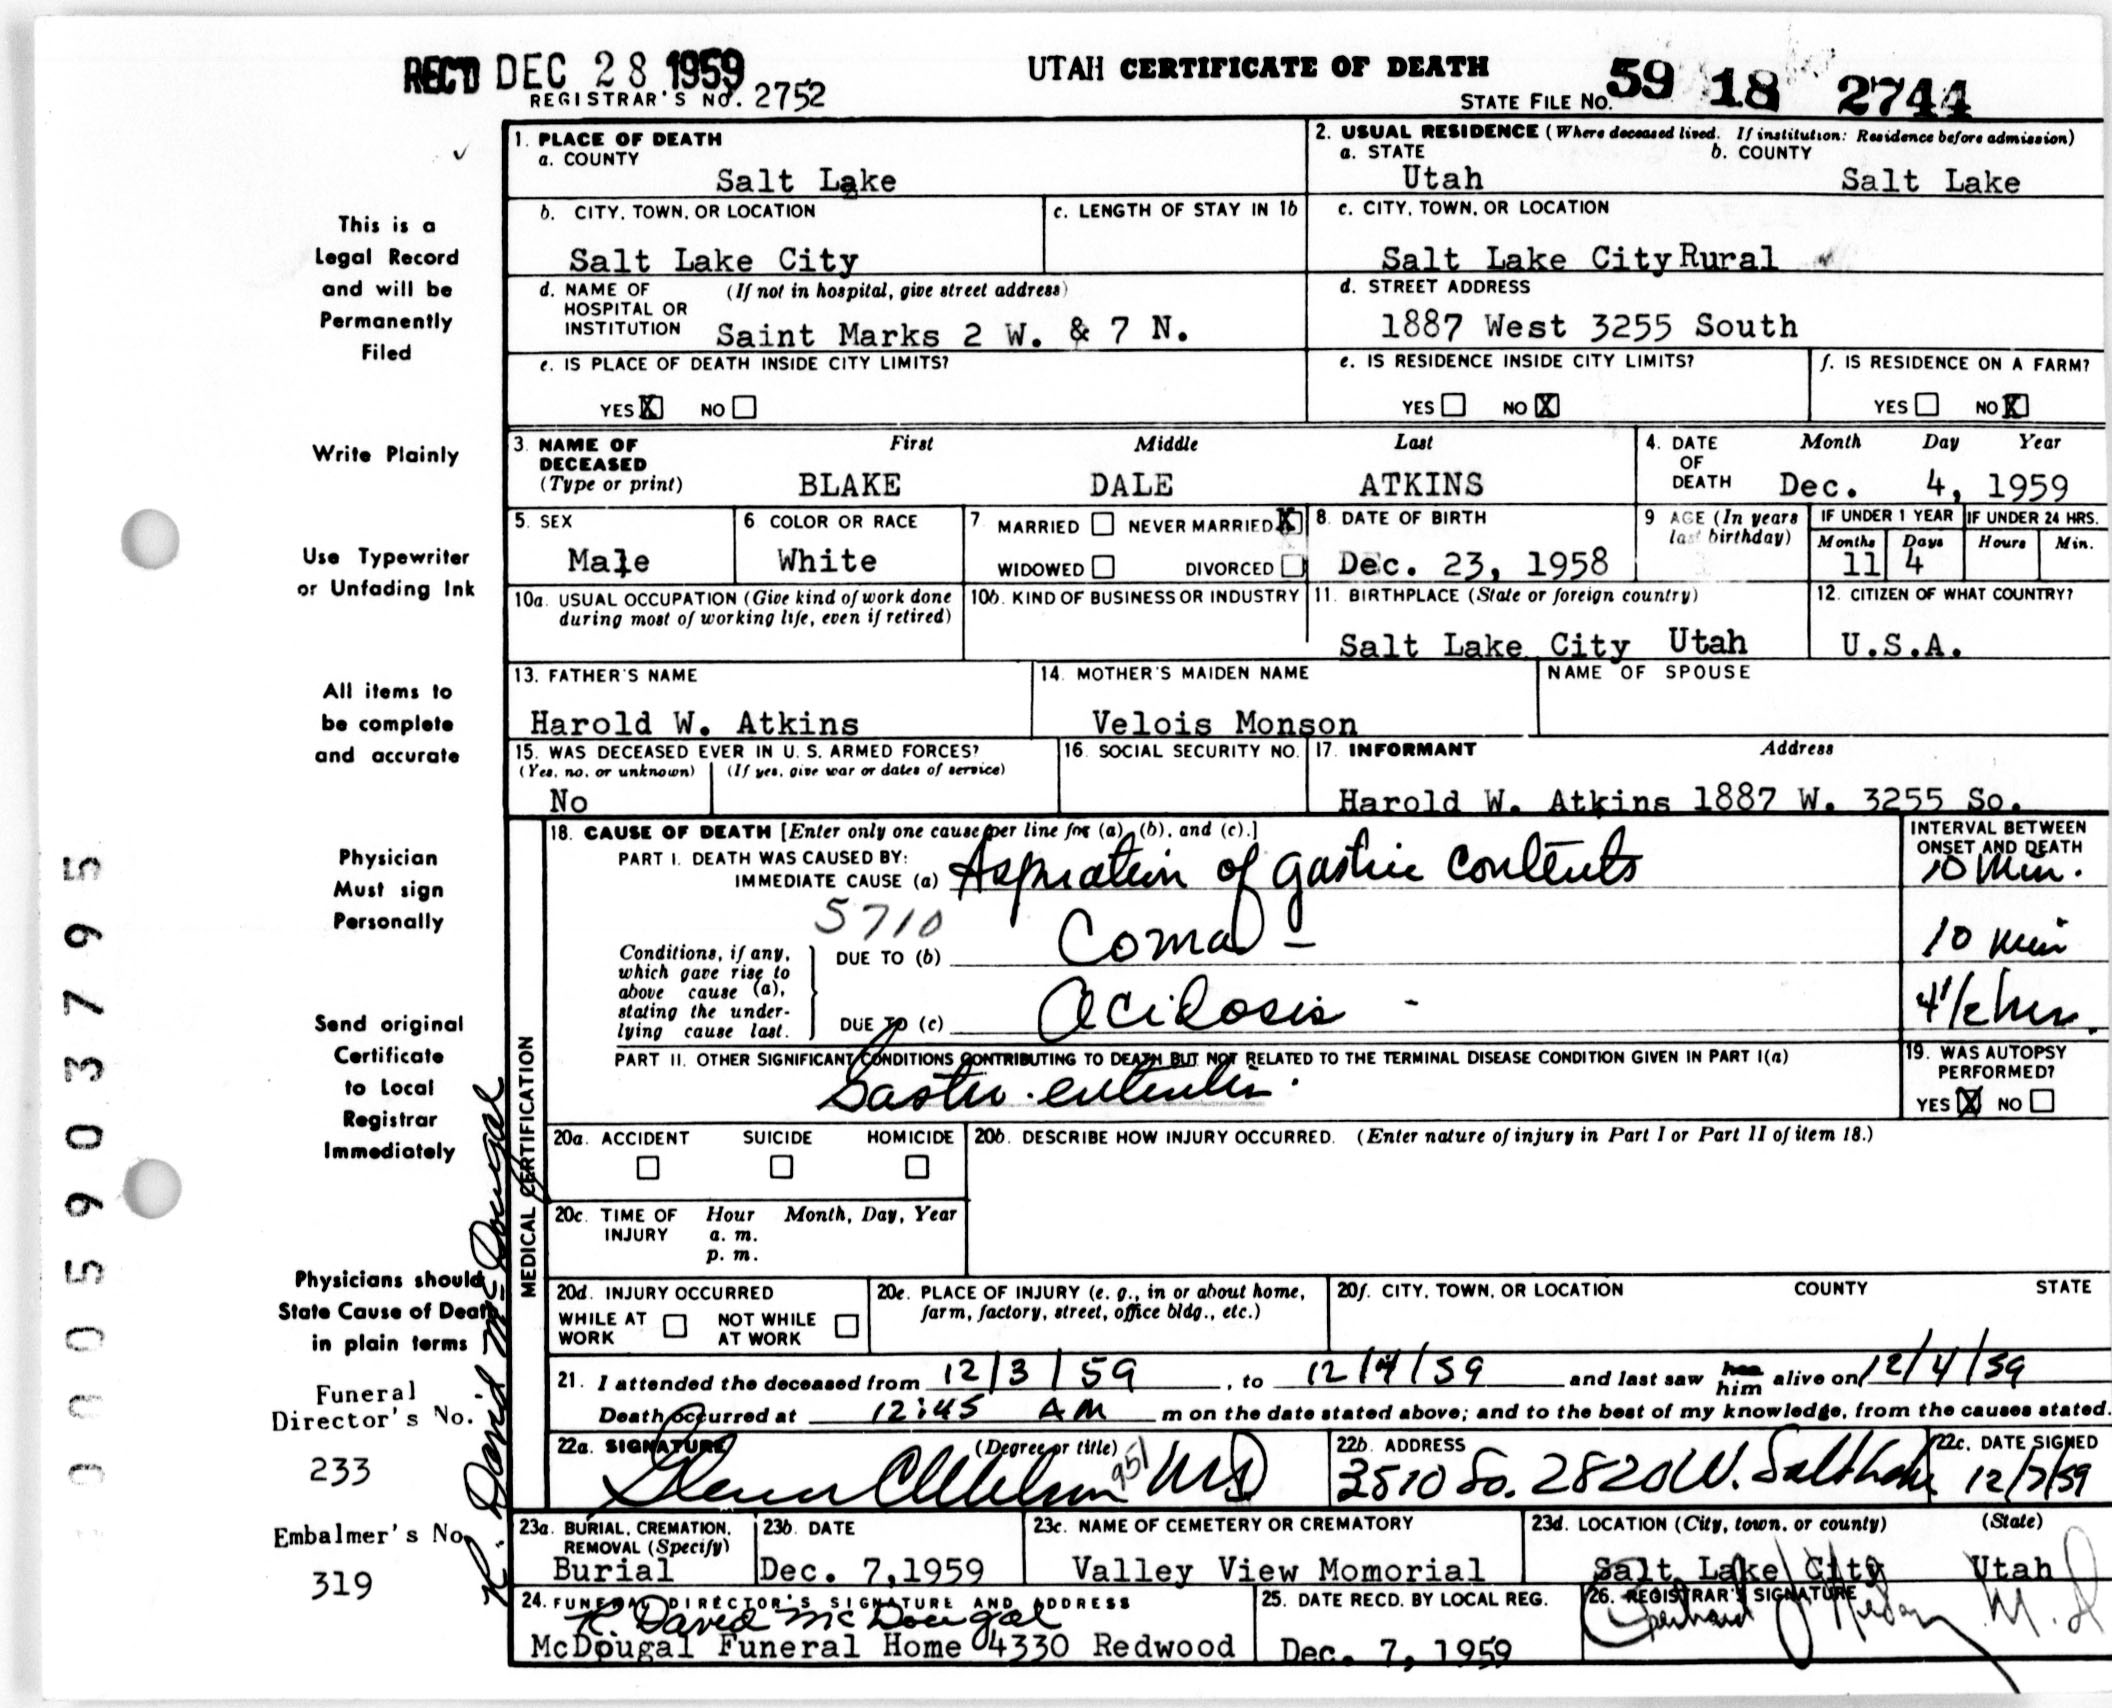 REC'D DEC 28 1959
UTAH CERTIFICATE OF DEATH
REGISTRAR'S NO. 2752
STATE FILE NO. 59 18 2744
1. PLACE OF DEATH
a. COUNTY
Salt Lake
2. USUAL RESIDENCE (Where deceased lived. If institution: Residence before admission)
a. STATE b. COUNTY
Utah Salt Lake
b. CITY, TOWN, OR LOCATION
Salt Lake City
c. LENGTH OF STAY IN 1b
c. CITY, TOWN, OR LOCATION
Salt Lake City Rural
d. NAME OF HOSPITAL OR INSTITUTION (If not in hospital, give street address)
Saint Marks 2 W. & 7 N.
d. STREET ADDRESS
1887 West 3255 South
e. IS PLACE OF DEATH INSIDE CITY LIMITS?
YES X NO
e. IS RESIDENCE INSIDE CITY LIMITS?
YES NO X
f. IS RESIDENCE ON A FARM?
YES NO X
3. NAME OF DECEASED (Type or print)
First Middle Last
BLAKE DALE ATKINS
4. DATE OF DEATH
Month Day Year
Dec. 4, 1959
5. SEX
Male
6 COLOR OR RACE
White
7 MARRIED NEVER MARRIED X
WIDOWED DIVORCED
8. DATE OF BIRTH
Dec. 23, 1958
9 AGE (In years last birthday)
IF UNDER 1 YEAR
Months Days
11 4
IF UNDER 24 HRS.
Hours Min.
10a. USUAL OCCUPATION (Give kind of work done during most of working life, even if retired)
10b. KIND OF BUSINESS OR INDUSTRY
11. BIRTHPLACE (State or foreign country)
Salt Lake City Utah
12. CITIZEN OF WHAT COUNTRY?
U.S.A.
13. FATHER'S NAME
Harold W. Atkins
14. MOTHER'S MAIDEN NAME
Velois Monson
NAME OF SPOUSE
15. WAS DECEASED EVER IN U. S. ARMED FORCES?
(Yes, no, or unknown) (If yes, give war or dates of service)
No
16. SOCIAL SECURITY NO.
17. INFORMANT Address
Harold W. Atkins 1887 W. 3255 So.
MEDICAL CERTIFICATION
18. CAUSE OF DEATH [Enter only one cause per line for (a), (b), and (c).]
PART I. DEATH WAS CAUSED BY:
IMMEDIATE CAUSE (a) Aspiration of gastric contents
INTERVAL BETWEEN ONSET AND DEATH
10 min.
5710
Conditions, if any, which gave rise to above cause (a), stating the underlying cause last.
DUE TO (b) Coma - 10 min
DUE TO (c) Acidosis - 4 1/2 hrs.
PART II. OTHER SIGNIFICANT CONDITIONS CONTRIBUTING TO DEATH BUT NOT RELATED TO THE TERMINAL DISEASE CONDITION GIVEN IN PART I(a)
Gastro-enteritis.
19. WAS AUTOPSY PERFORMED?
YES X NO
20a. ACCIDENT SUICIDE HOMICIDE
20b. DESCRIBE HOW INJURY OCCURRED. (Enter nature of injury in Part I or Part II of item 18.)
20c. TIME OF INJURY Hour Month, Day, Year
a. m.
p. m.
20d. INJURY OCCURRED
WHILE AT WORK NOT WHILE AT WORK
20e. PLACE OF INJURY (e. g., in or about home, farm, factory, street, office bldg., etc.)
20f. CITY, TOWN, OR LOCATION COUNTY STATE
21. I attended the deceased from 12/3/59, to 12/4/59 and last saw him alive on 12/4/59
Death occurred at 12:45 AM m on the date stated above; and to the best of my knowledge, from the causes stated.
22a. SIGNATURE (Degree or title)
Glenn 951 MD
22b. ADDRESS
3510 So. 2820 W. Salt Lake
22c. DATE SIGNED
12/7/59
23a. BURIAL, CREMATION, REMOVAL (Specify)
Burial
23b. DATE
Dec. 7,1959
23c. NAME OF CEMETERY OR CREMATORY
Valley View Momorial
23d. LOCATION (City, town, or county) (State)
Salt Lake City Utah
24. FUNERAL DIRECTOR'S SIGNATURE AND ADDRESS
R David McDougal
McDougal Funeral Home 4330 Redwood
25. DATE RECD. BY LOCAL REG.
Dec. 7, 1959
26. REGISTRAR'S SIGNATURE
M.D
This is a
Legal Record
and will be
Permanently
Filed
Write Plainly
Use Typewriter
or Unfading Ink
All items to
be complete
and accurate
Physician
Must sign
Personally
Send original
Certificate
to Local
Registrar
Immediately
Physicians should
State Cause of Death
in plain terms
Funeral
Director's No.
233
Embalmer's No.
319
R. David McDougal
0005903795